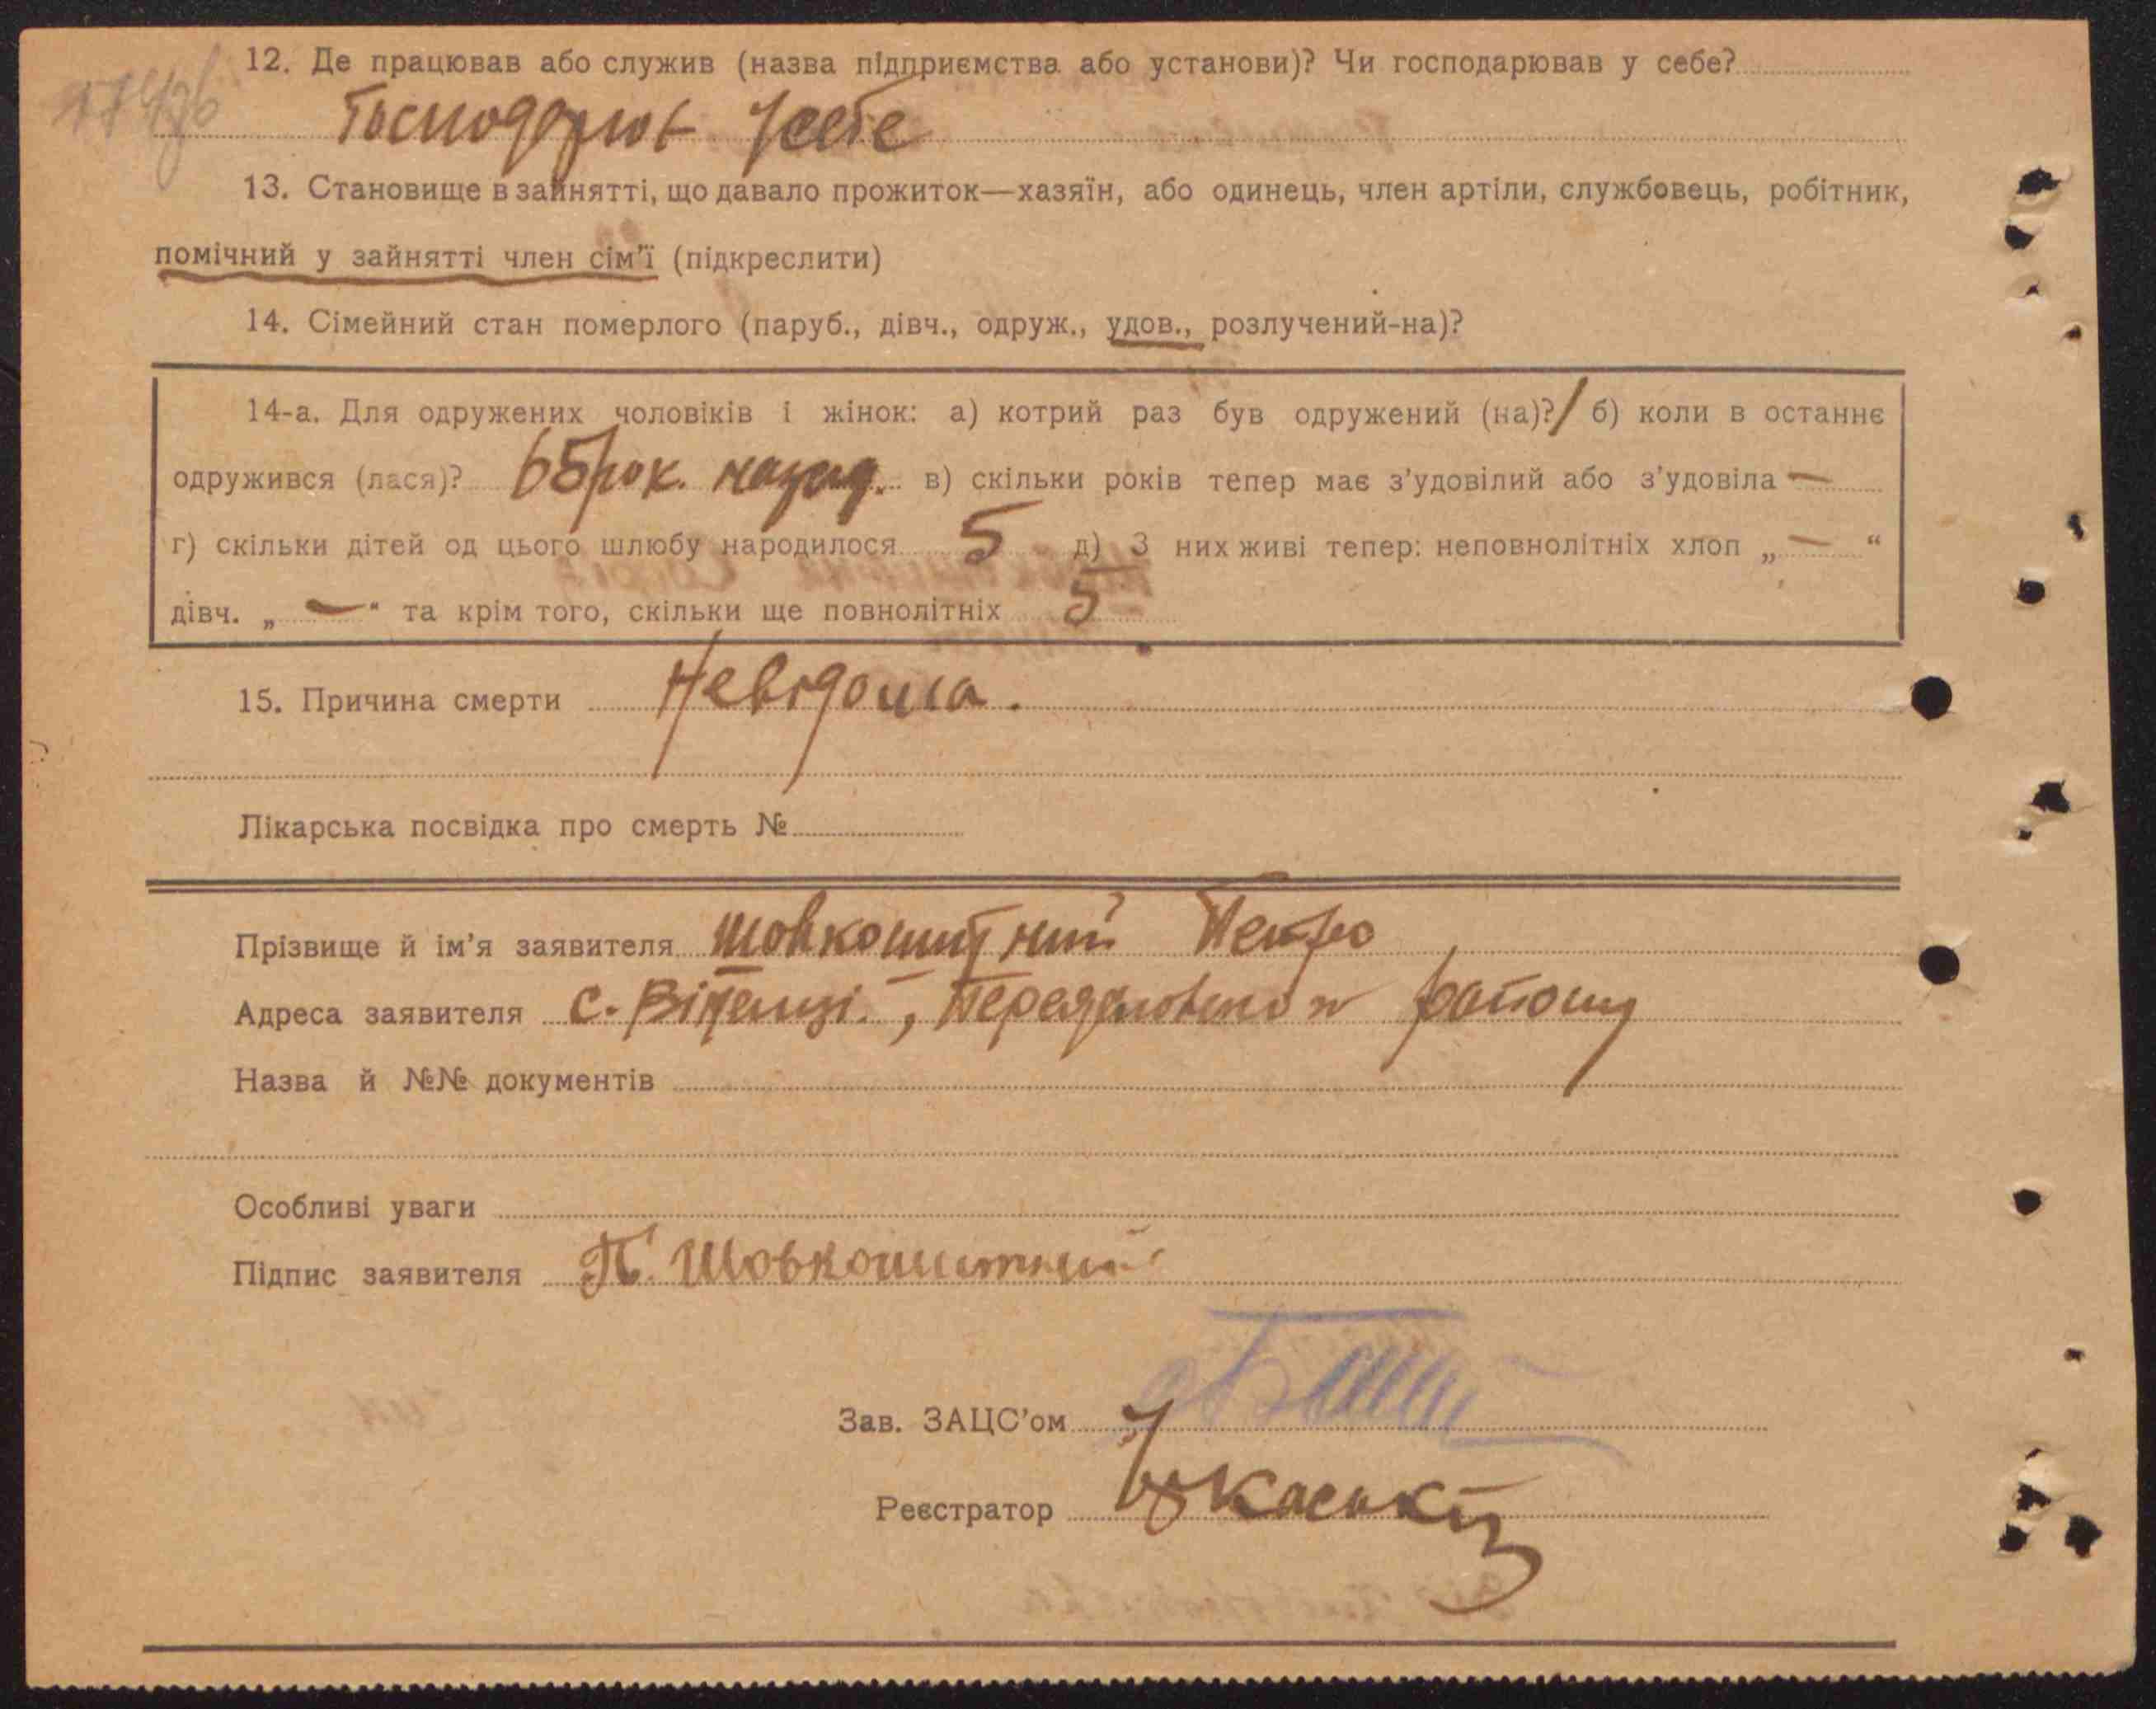 12. Де працював або служив (назва підприємства або установи)? Чи господарював у себе?
Господарюв у себе
13. Становище в зайнятті, що давало прожиток—хазяїн, або одинець, член артіли, службовець, робітник,
помічний у зайнятті член сім'ї (підкреслити)
14. Сімейний стан померлого (паруб., дівч., одруж., удов., розлучений-на)?
14-а. Для одружених чоловіків і жінок: а) котрий раз був одружений (на)? 1 б) коли в останнє
одружився (лася)? 65 рок. назад. в) скільки років тепер має з'удовілий або з'удовіла —
г) скільки дітей од цього шлюбу народилося 5 д) З них живі тепер: неповнолітніх хлоп „ — “
дівч. „ — “ та крім того, скільки ще повнолітніх 5
15. Причина смерти Невідома.
Лікарська посвідка про смерть №
Прізвище й ім'я заявителя Шовкошитний Петро
Адреса заявителя с. Віпенці., району
Назва й №№ документів
Особливі уваги
Підпис заявителя П. Шовкошитний
Зав. ЗАЦС'ом
Реєстратор